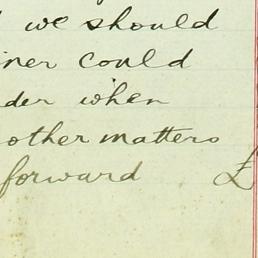 we should
iner could
der when
other matters
forward £